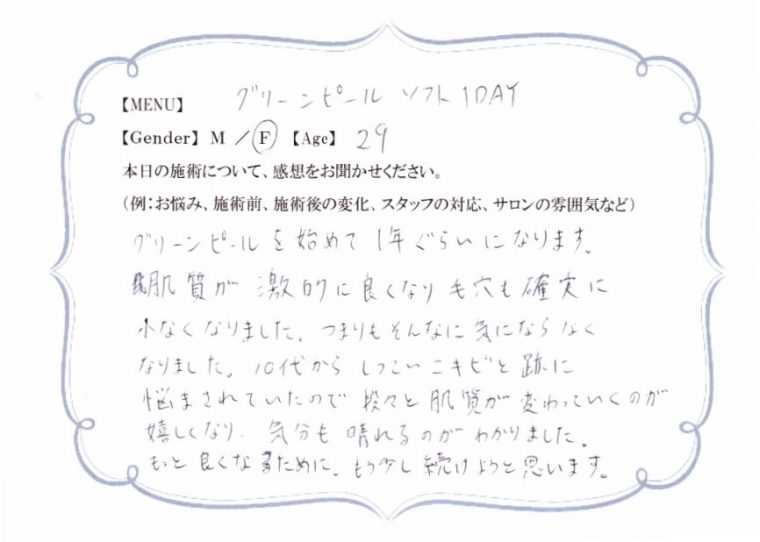 【MENU】 グリーンピール ソフト 1DAY
【Gender】 M / F 【Age】 29
本日の施術について、感想をお聞かせください。
(例:お悩み、施術前、施術後の変化、スタッフの対応、サロンの雰囲気など)
グリーンピールを始めて1年ぐらいになります。
肌質が激的に良くなり毛穴も確実に
小なくなりました。つまりもそんなに気にならなく
なりました。10代からしつこいニキビと跡に
悩まされていたので段々と肌質が変わっていくのが
嬉しくなり、気分も晴れるのがわかりました。
もっと良くなるために、もう少し続けようと思います。